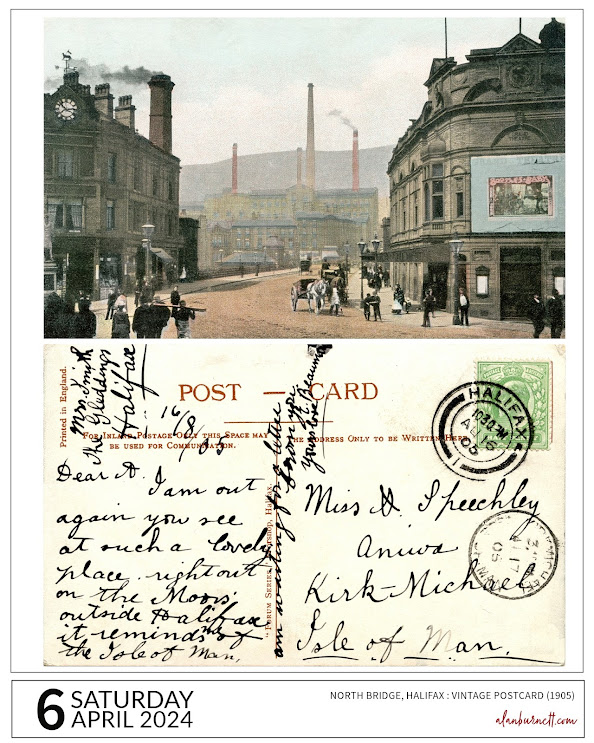 Printed in England.
Mrs. Smith
The Gleddings
Halifax
16/8/05
POST — CARD
FOR INLAND POSTAGE ONLY THIS SPACE MAY
BE USED FOR COMMUNICATION.
THE ADDRESS ONLY TO BE WRITTEN HERE
Dear A. I am out
again you see
at such a lovely
place, right out
on the Moors
outside Halifax
it reminds me of
the Isle of Man,
am waiting for a letter
from you
your love
Beaumont
"Forum Series," Halifax.
HALIFAX
AU 16
05
1
Miss A. Speechley
Aniwa
Kirk-Michael
Isle of Man.
KIRK MICHAEL
17
05
6 SATURDAY
APRIL 2024
NORTH BRIDGE, HALIFAX : VINTAGE POSTCARD (1905)
alanburnett.com